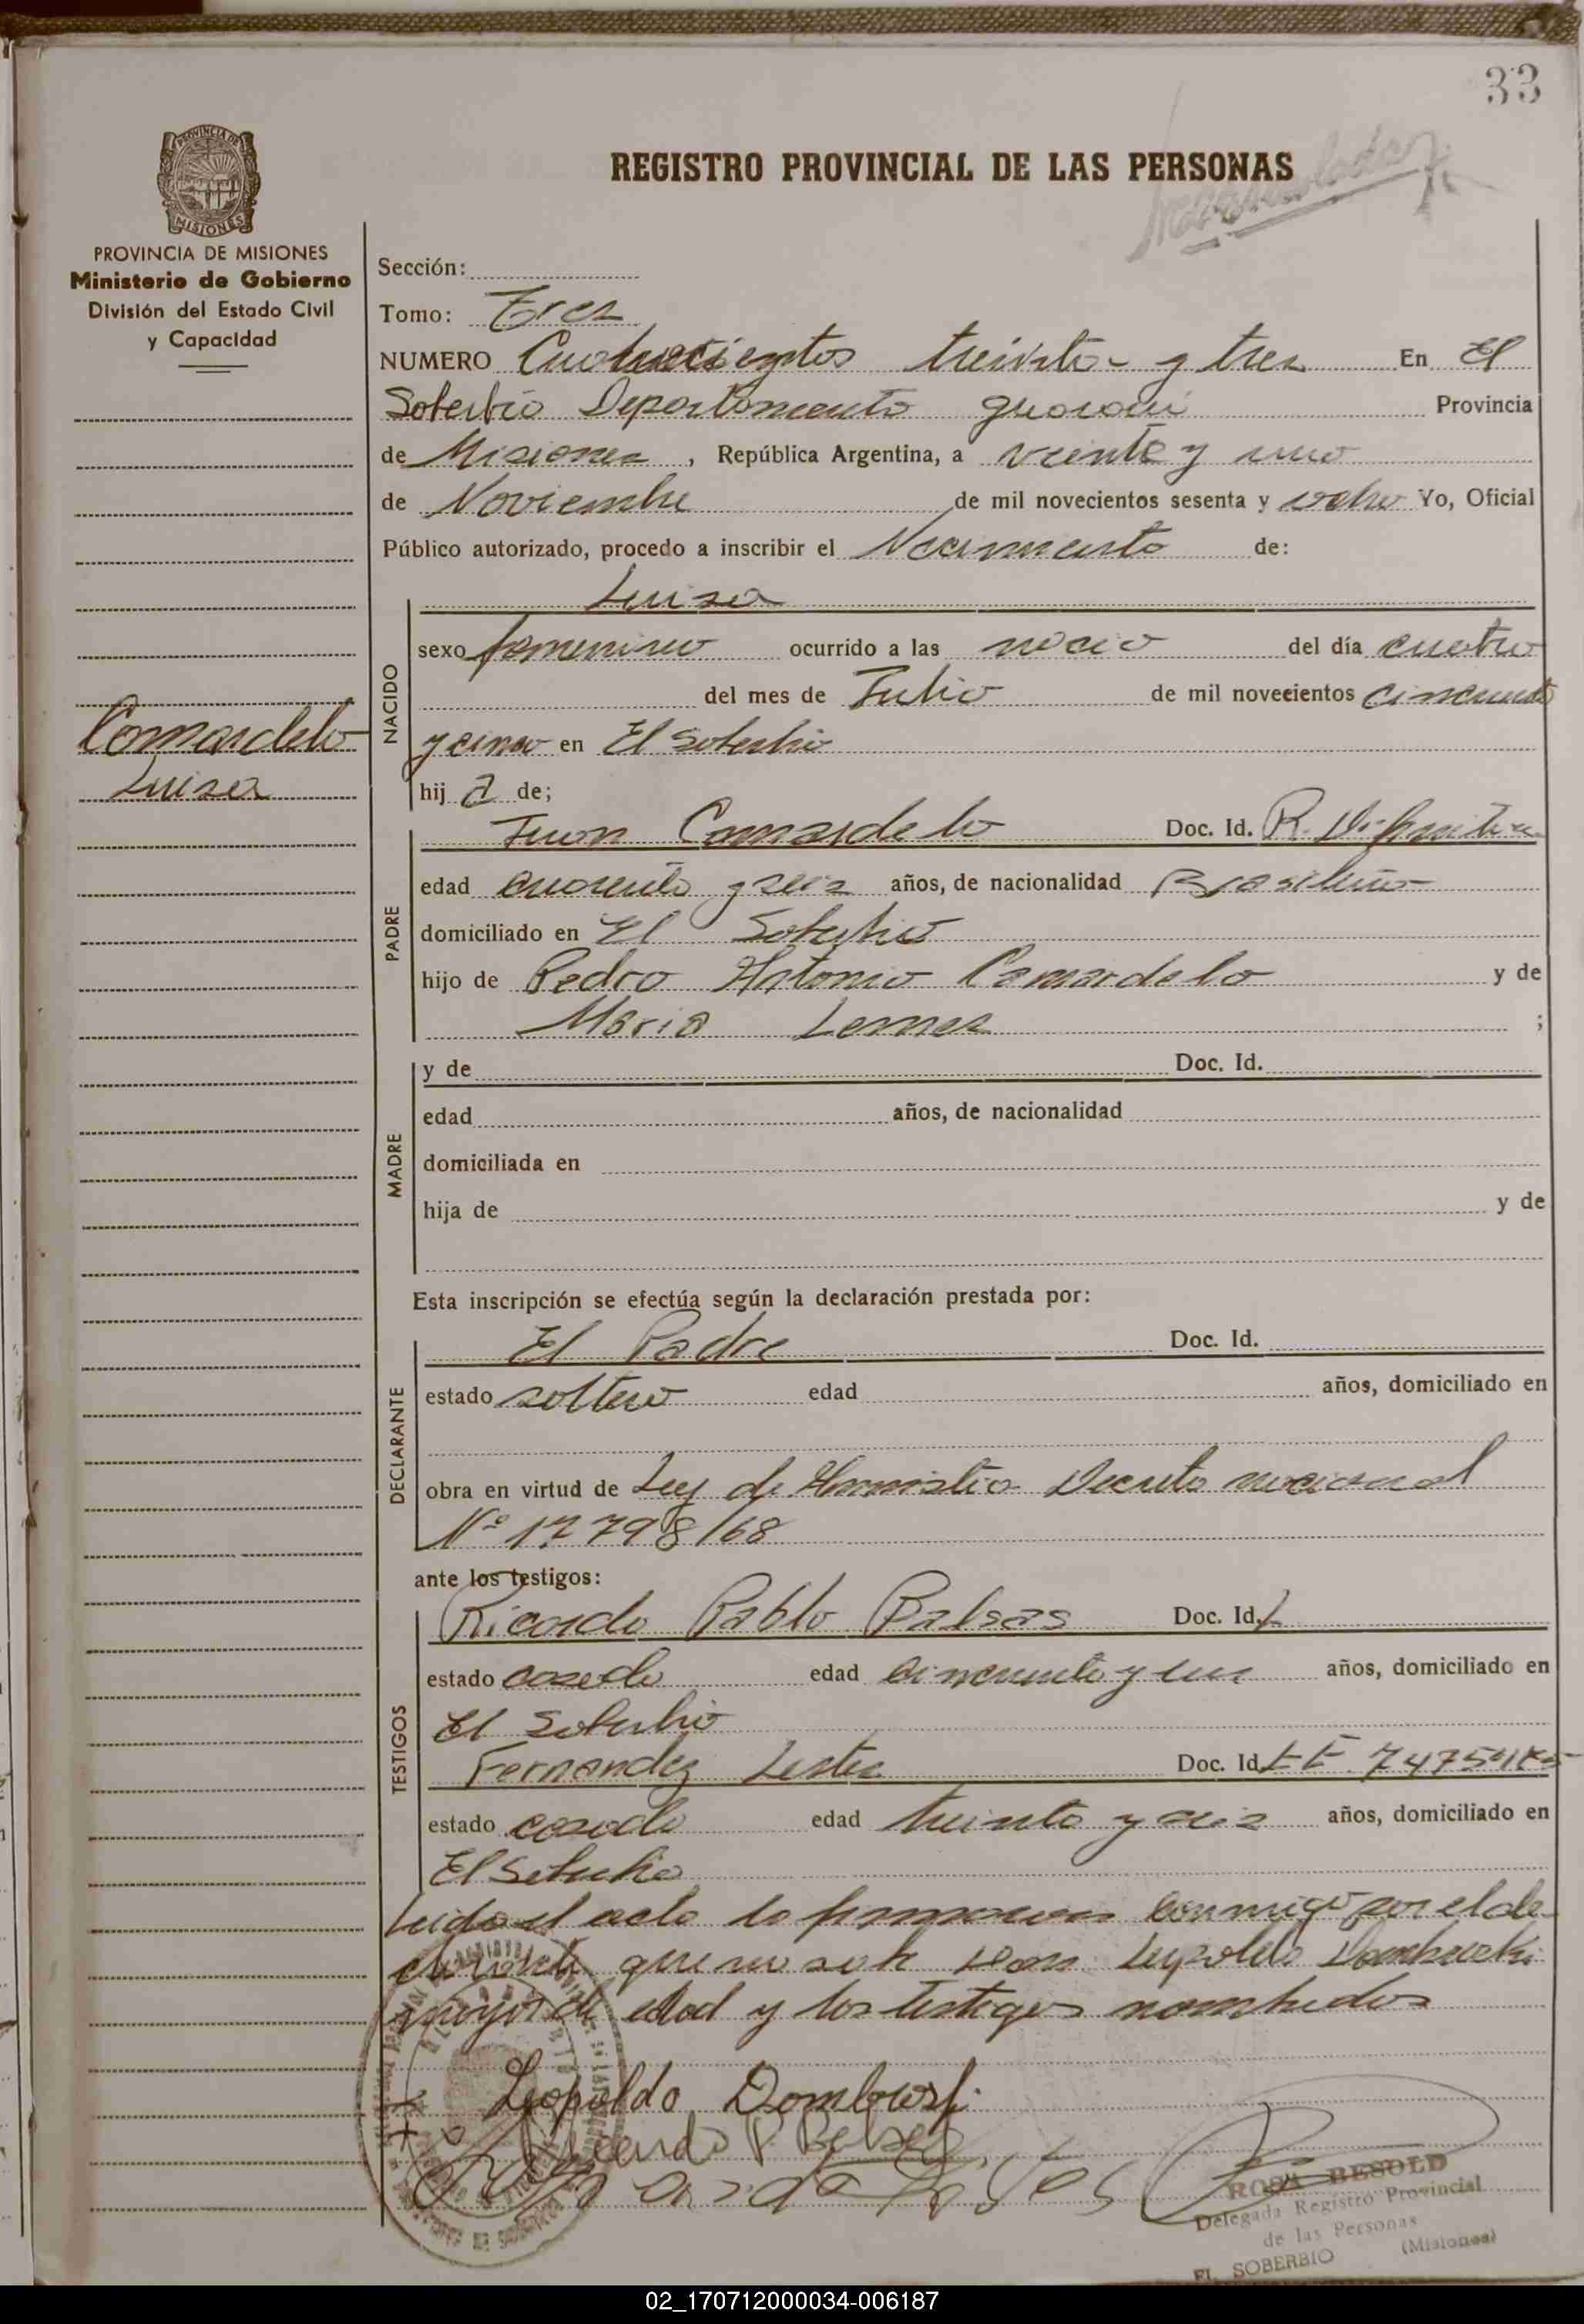 33
REGISTRO PROVINCIAL DE LAS PERSONAS
PROVINCIA DE MISIONES
Ministerio de Gobierno
División del Estado Civil
y Capacidad
Sección:
Tomo: Tres
NUMERO Cuatrocientos treinta y tres En El
Soberbio Departamento Guarani Provincia
de Misiones , República Argentina, a veinte y uno
de Noviembre de mil novecientos sesenta y ocho Yo, Oficial
Público autorizado, procedo a inscribir el Nacimiento de:
Luisa
NACIDO
sexo femenino ocurrido a las del día cuatro
del mes de Julio de mil novecientos cincuenta
y cinco en El Soberbio
Comardelo
Luisa
hij a de;
PADRE
Juan Comardelo Doc. Id.
edad cuarenta y seis años, de nacionalidad Brasileño
domiciliado en El Soberbio
hijo de Pedro Antonio Camardelo y de
Maria Lemes ;
MADRE
y de Doc. Id.
edad años, de nacionalidad
domiciliada en
hija de y de
Esta inscripción se efectúa según la declaración prestada por:
DECLARANTE
El Padre Doc. Id.
estado soltero edad años, domiciliado en
obra en virtud de Ley de Amnistia Decreto nacional
Nº 17798/68
ante los testigos:
TESTIGOS
Ricardo Pablo Balsas Doc. Id.
estado casado edad cincuenta y un años, domiciliado en
El Soberbio
Fernandez Lester Doc. Id.
estado casado edad treinta y seis años, domiciliado en
El Soberbio
Leida el acta la firmaron conmigo por el de
clarante que no sabe Don Leopoldo Dombrocki
mayor de edad y los testigos nombrados
Leopoldo Dombrosky
Ricardo P. Balsas
ROSA RESOLD
Delegada Registro Provincial
de las Personas
EL SOBERBIO (Misiones)
02_170712000034-006187